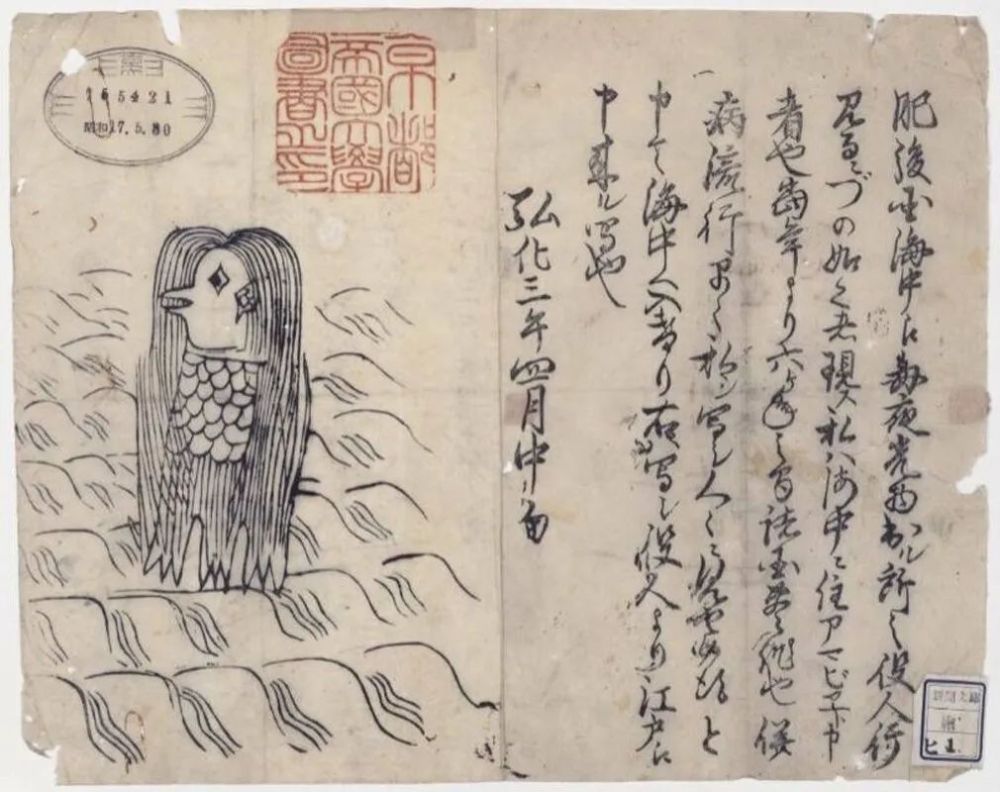 肥後国海中江毎夜光物出ル所之役人行
見るニづの如く者現ス私ハ海中ニ住アマビヱト申
者也當年より六ヶ年之間諸国豊作也併
病流行早々私ヲ写シ人々ニ見せ候得と
申て海中へ入けり右写シ役人より江戸江
申来ル写也
弘化三年四月中旬
京都
帝國大學
圖書之印
昭和17.5.30
ヒ 1